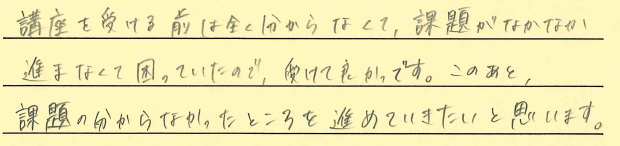 講座を受ける前は全く分からなくて、課題がなかなか
進まなくて困っていたので、受けて良かっです。このあと、
課題の分からなかったところを進めていきたいと思います。